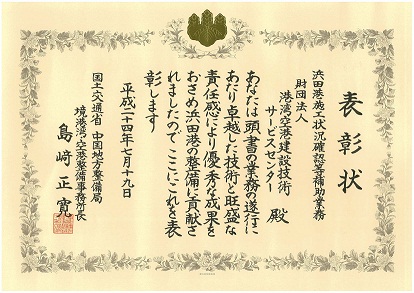 表彰状
浜田港施工状況確認等補助業務
財団法人
港湾空港建設技術
サービスセンター 殿
あなたは頭書の業務の遂行に
あたり卓越した技術と旺盛な
責任感により優秀な成果を
おさめ浜田港の整備に貢献さ
れましたのでここにこれを表
彰します
平成二十四年七月十九日
国土交通省 中国地方整備局
境港湾・空港整備事務所長
島崎 正寛